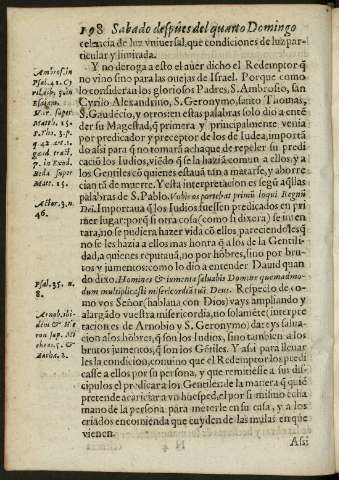 198 Sabado despúes del quarto Domingo
celencia de luz vniuersal, que condiciones de luz par-
ticular y limitada.
Y no deroga a esto el auer dicho el Redemptor q̃
no vino sino para las ouejas de Israel. Porque como
lo consideran los gloriosos Padres, S. Ambrosio, san
Cyrilo Alexandrino, S. Geronymo, santo Thomas,
S. Gaudẽcio, y otros: en estas palabras solo dio a entẽ
der su Magestad, q̃ primera y principalmente venia
por predicador y preceptor de los de Iudea, importã
do assi para q̃ no tomarã achaque de repeler su predi
caciõ los Iudios, viẽdo q̃ se la hazia comun a ellos, y a
los Gentiles cõ quienes estauã tan a matarse, y aborre
cian tã de muerte. Y esta interpretacion es segũ aq̃llas
palabras de S. Pablo. Vobis oportebat primũ loqui Regnũ
Dei. Importaua q̃ los Iudios fuessen predicados en pri
mer lugar: porq̃ si otra cosa (como si dixera) se inten
tara, no se pudiera hazer vida cõ ellos pareciendoles q̃
no se les hazia a ellos mas honra q̃ a los de la Gentili-
dad, a quienes reputauã, no por hõbres, sino por bru-
tos y jumentos: como lo dio a entender Dauid quan
do dixo. Homines & iumenta saluabis Domine quemadmo-
dum multiplicasti misericordiã tuã Deus. Respecto de co-
mo vos Señor (hablaua con Dios) vays ampliando y
alargãdo vuestra misericordia, no solamẽte (interpre
tacion es de Arnobio y S. Geronymo) dareys saluа-
cion a los hõbres, q̃ son los Iudios, sino tambien a los
brutos jumentos, q̃ son los Gẽtiles. Y assi para lleuar
les la condicion, conuino que el Redemptor los predi
casse a ellos por su persona, y que remitiesse a sus dis-
cipulos el predicar a los Gentiles: de la manera q̃ quiẽ
pretende acariciar a vn huesped, el por si mismo echa
mano de la persona para meterle en su casa, y a los
criados encomienda que cuyden de las mulas en que
vienen.
Assi
Ambros. in
Psal. 43. Cy
ril. lib. 5. in
Esaiam.
Hier. super
Matt. 15.
S. Tho. 3. p.
q. 42. ar. 1.
Gaud. tract.
Beda super
Matt. 15.
Actor. 3. n.
46.
Psal. 35. n.
8.
Arnob. ibi-
dem & Hie
ron. sup. Mi